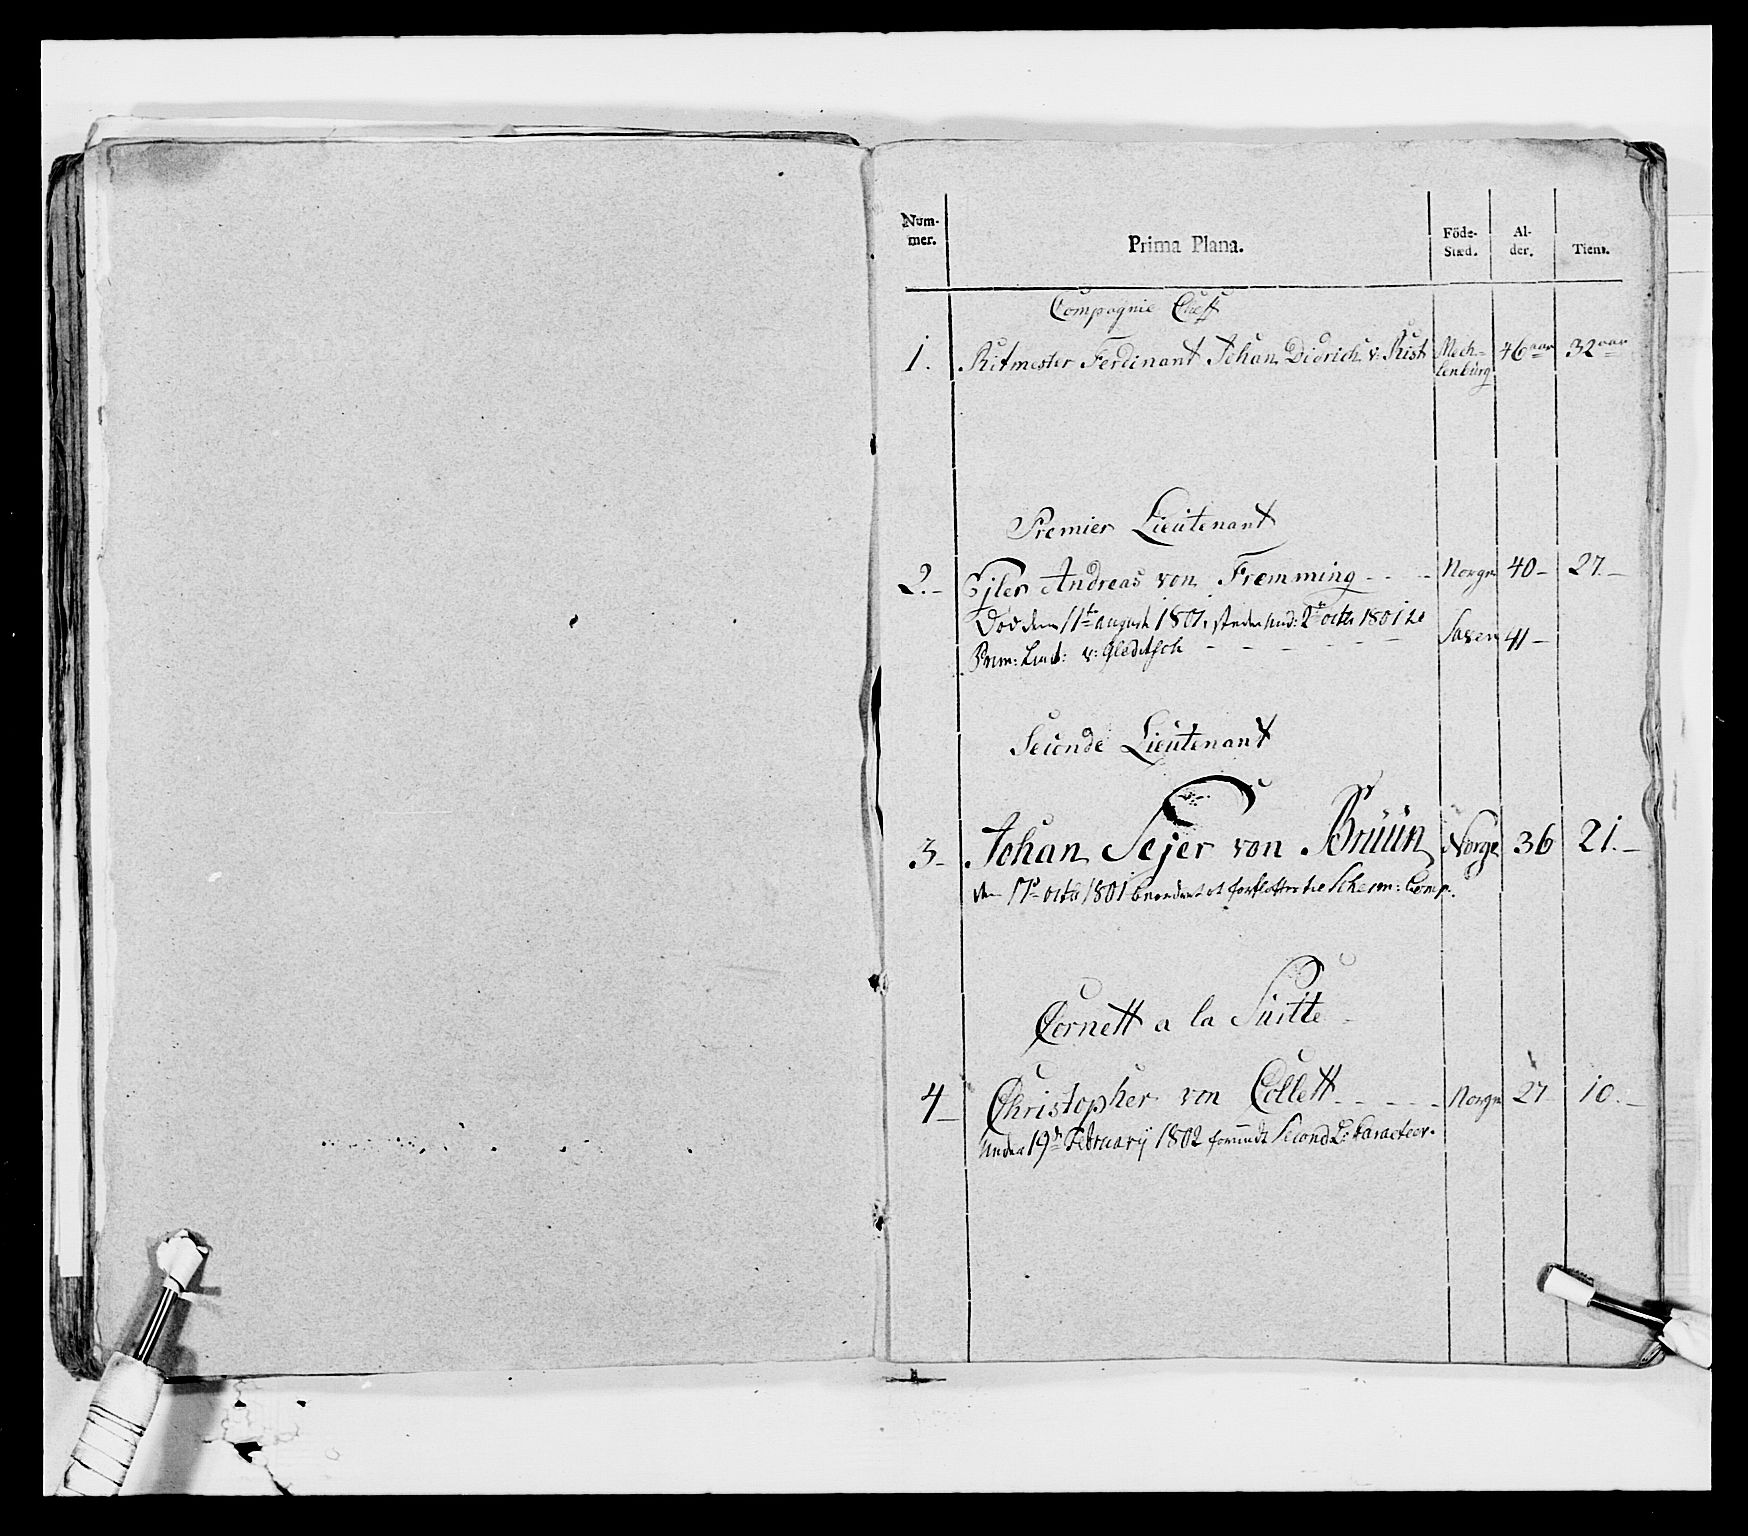 Num-
mer.
Prima Plana.
Föde-
Stæd.
Al-
der.
Tient.
Compagnie Cheff
1. Ritmester Ferdinant Johan Didrich v: Rist Mech- 46 aar 32 aar
lenburg
Premier Lieutenant
2. Ejler Andreas von Fremming Norge 40 27.
Död den 11te august 1801, 2de octbr 1801
Prim: Lieut: v: Gleditsch Saxen 41
Seconde Lieutenant
3 Johan Sejer von Brüün Norge 36 21.
den 17de octb 1801 beordret at forflÿttes til Scherm: Comp.
Cornett a la Suitte
4 Christopher von Collett Norge 27 10.
Under 19de February 1802 forundt Second Lt Caracteer.